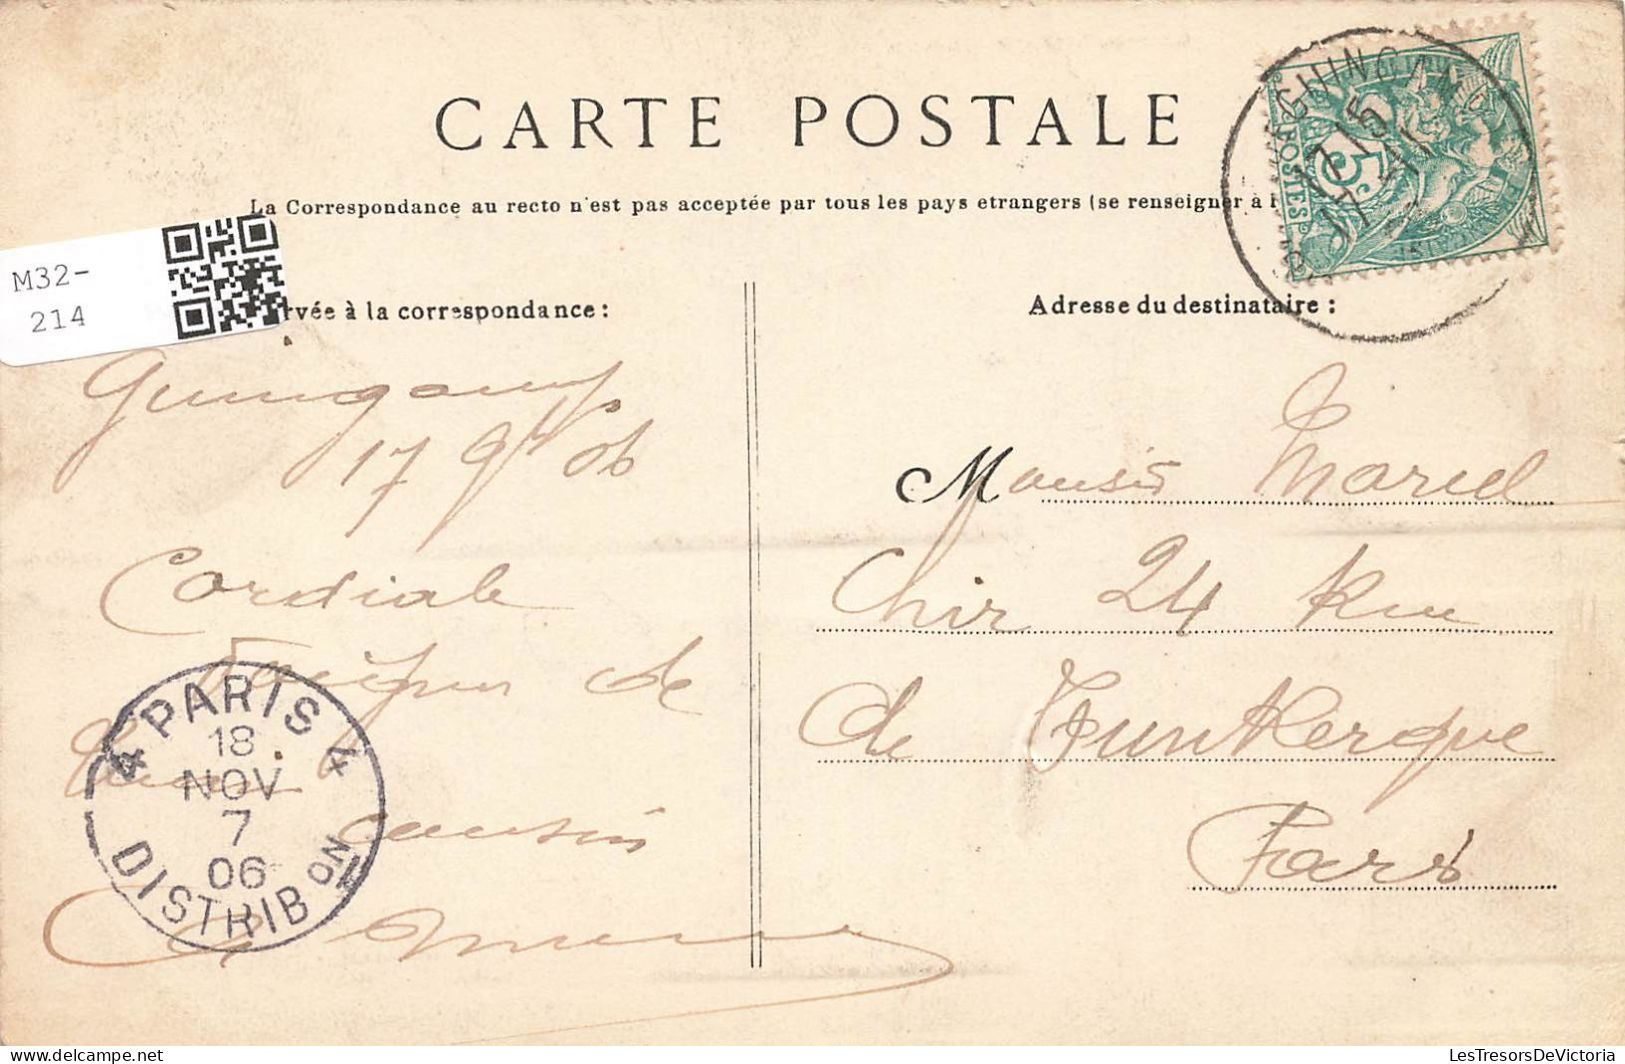 CARTE POSTALE
La Correspondance au recto n'est pas acceptée par tous les pays etrangers (se renseigner à
M32-
214
rvée à la correspondance :
Adresse du destinataire :
GUINGAMP
17-11
POSTES
5
Guingamp
17 9bre 06
Cordiale
de
cousin
Monsieur
24 Rue
de Dunkerque
Paris
PARIS
4 4
18
NOV
7
06
DISTRIBON
LesTresorsDeVictoria.com